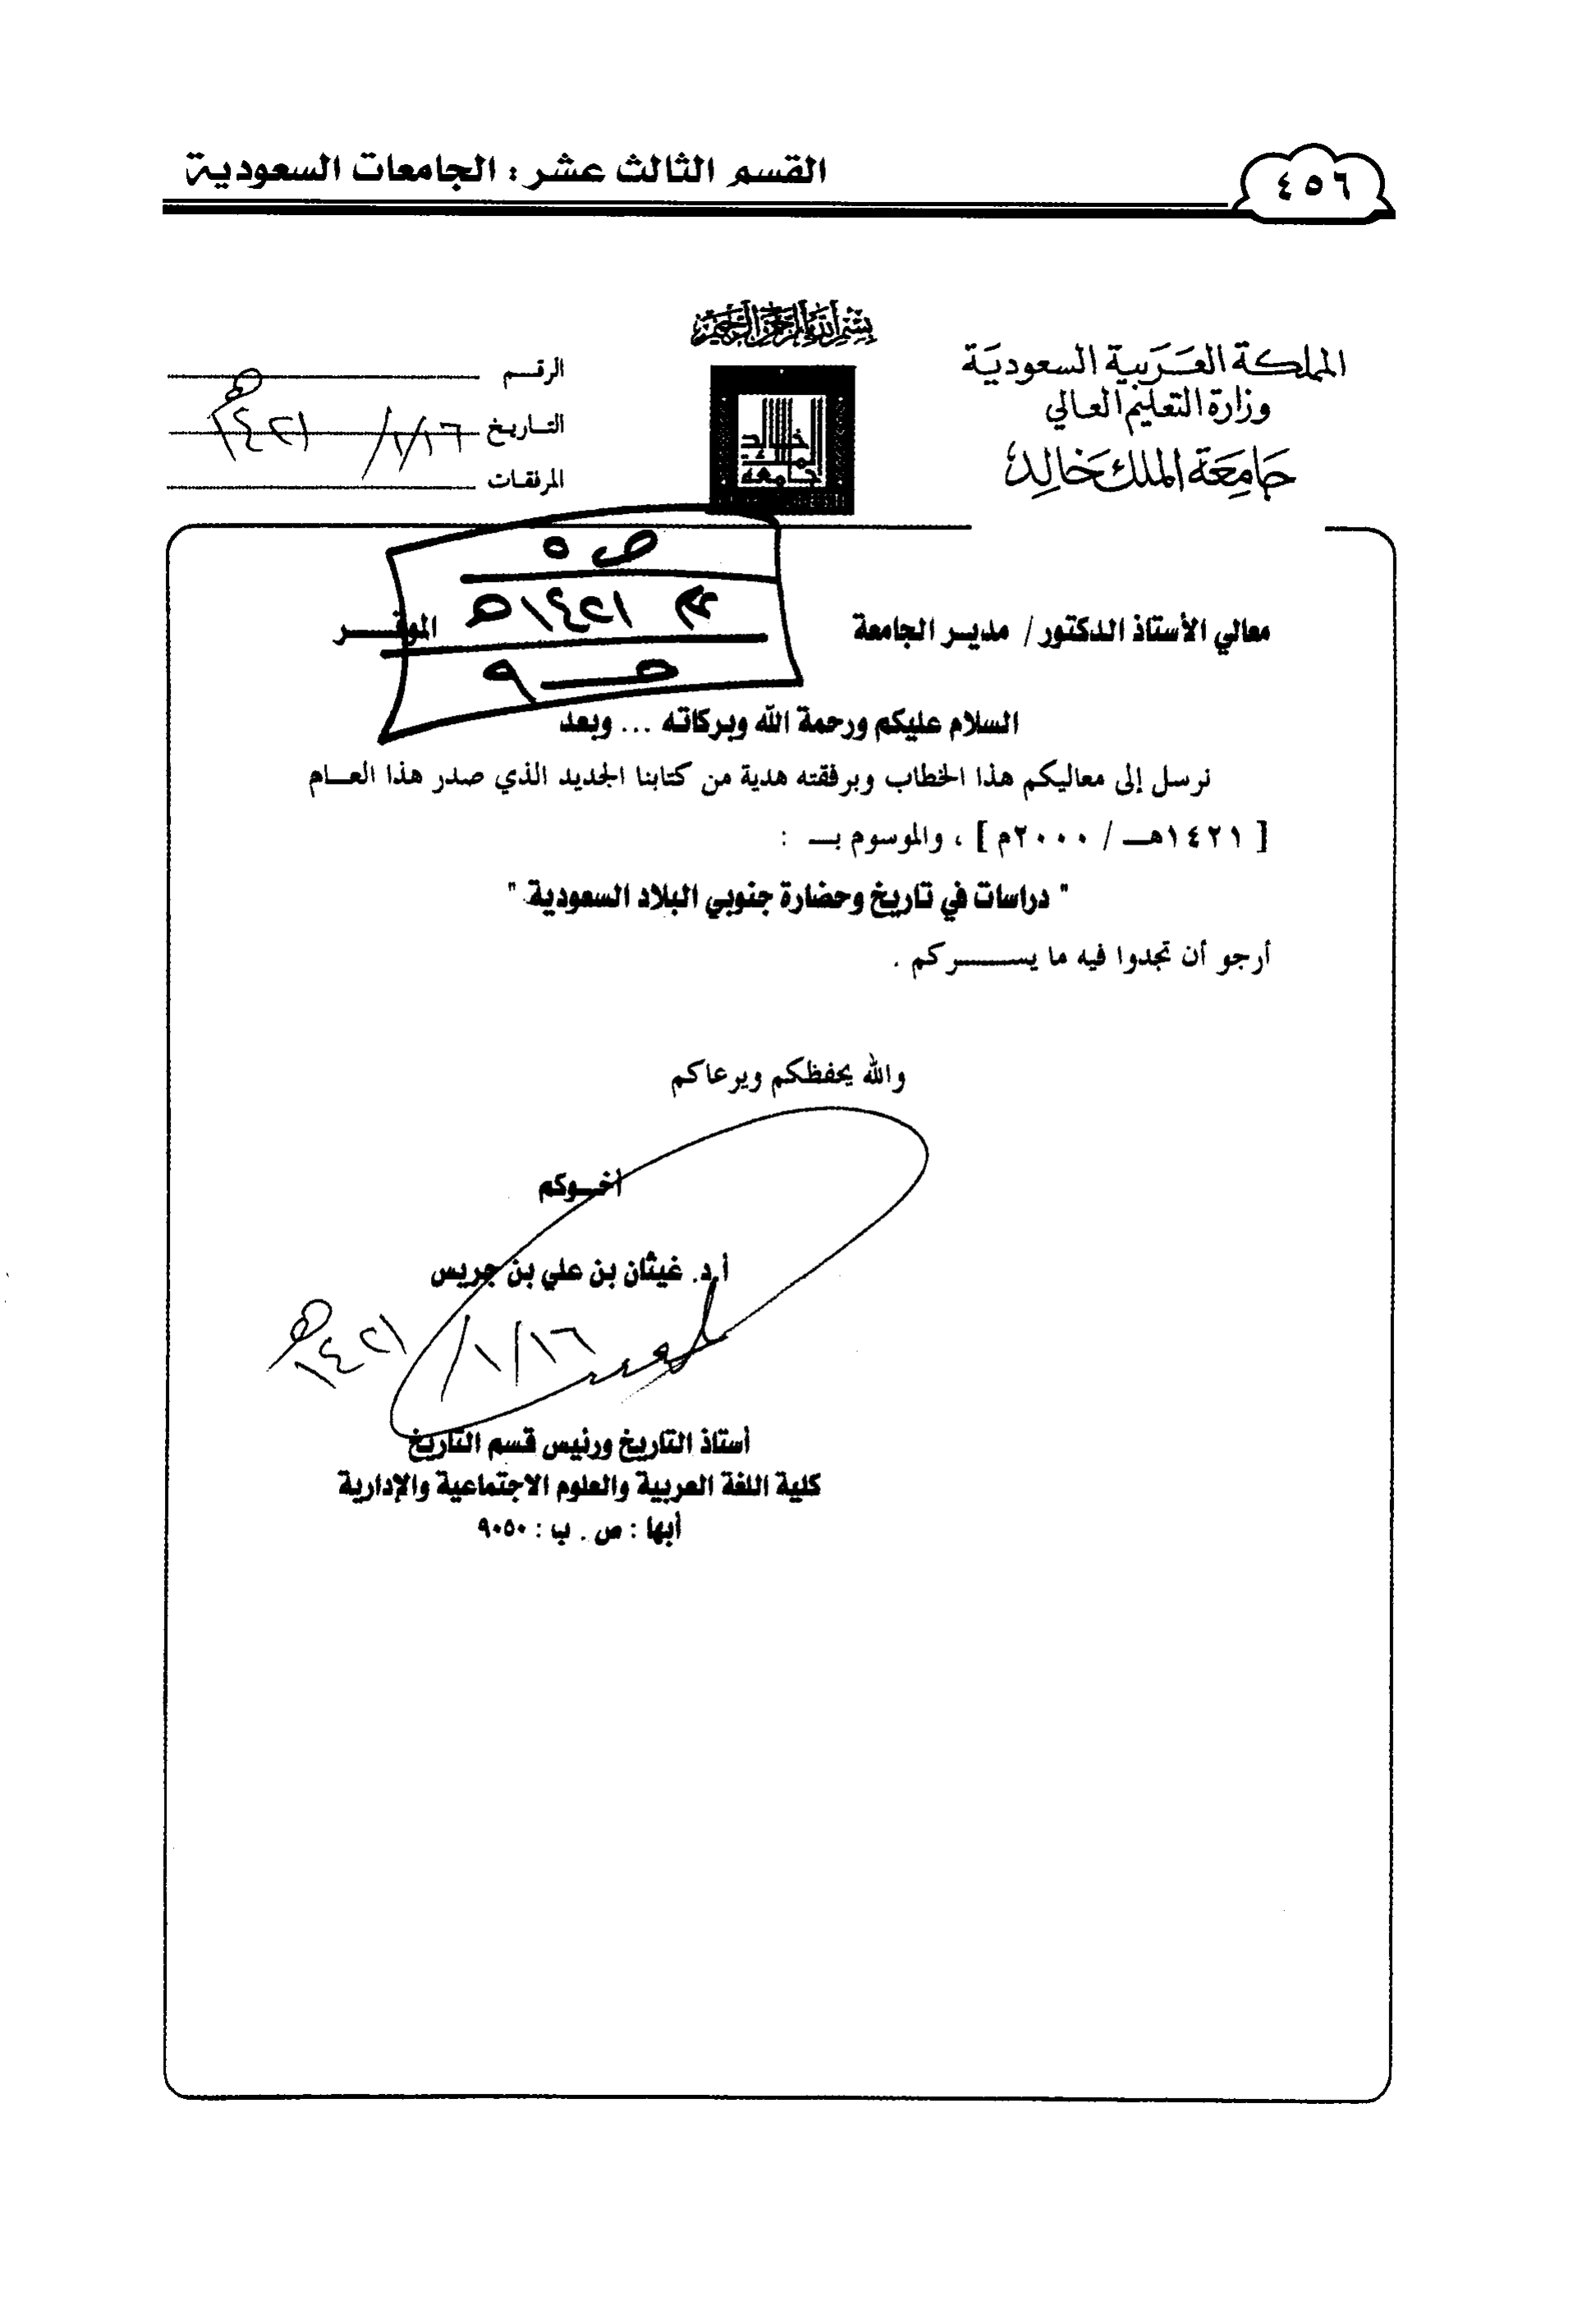 ٤٥٦
القسم الثالث عشر : الجامعات السعودية
بسم الله الرحمن الرحيم
المملكة العربية السعودية
وزارة التعليم العالي
جامعة الملك خالد
جامعة الملك خالد
الرقم
التاريخ ١٦/١/١٤٢١هـ
المرفقات
ص ٥
١٤٢١هـ
٩
معالي الأستاذ الدكتور / مدير الجامعة الموقر
السلام عليكم ورحمة الله وبركاته ... وبعد
نرسل إلى معاليكم هذا الخطاب وبرفقته هدية من كتابنا الجديد الذي صدر هذا العام
[ ١٤٢١هـ / ٢٠٠٠م ] ، والموسوم بـ :
" دراسات في تاريخ وحضارة جنوبي البلاد السعودية "
أرجو أن تجدوا فيه ما يسركم .
والله يحفظكم ويرعاكم
أخوكم
أ.د. غيثان بن علي بن جريس
١٦/١/١٤٢١هـ
أستاذ التاريخ ورئيس قسم التاريخ
كلية اللغة العربية والعلوم الاجتماعية والإدارية
أبها : ص . ب : ٩٠٥٠